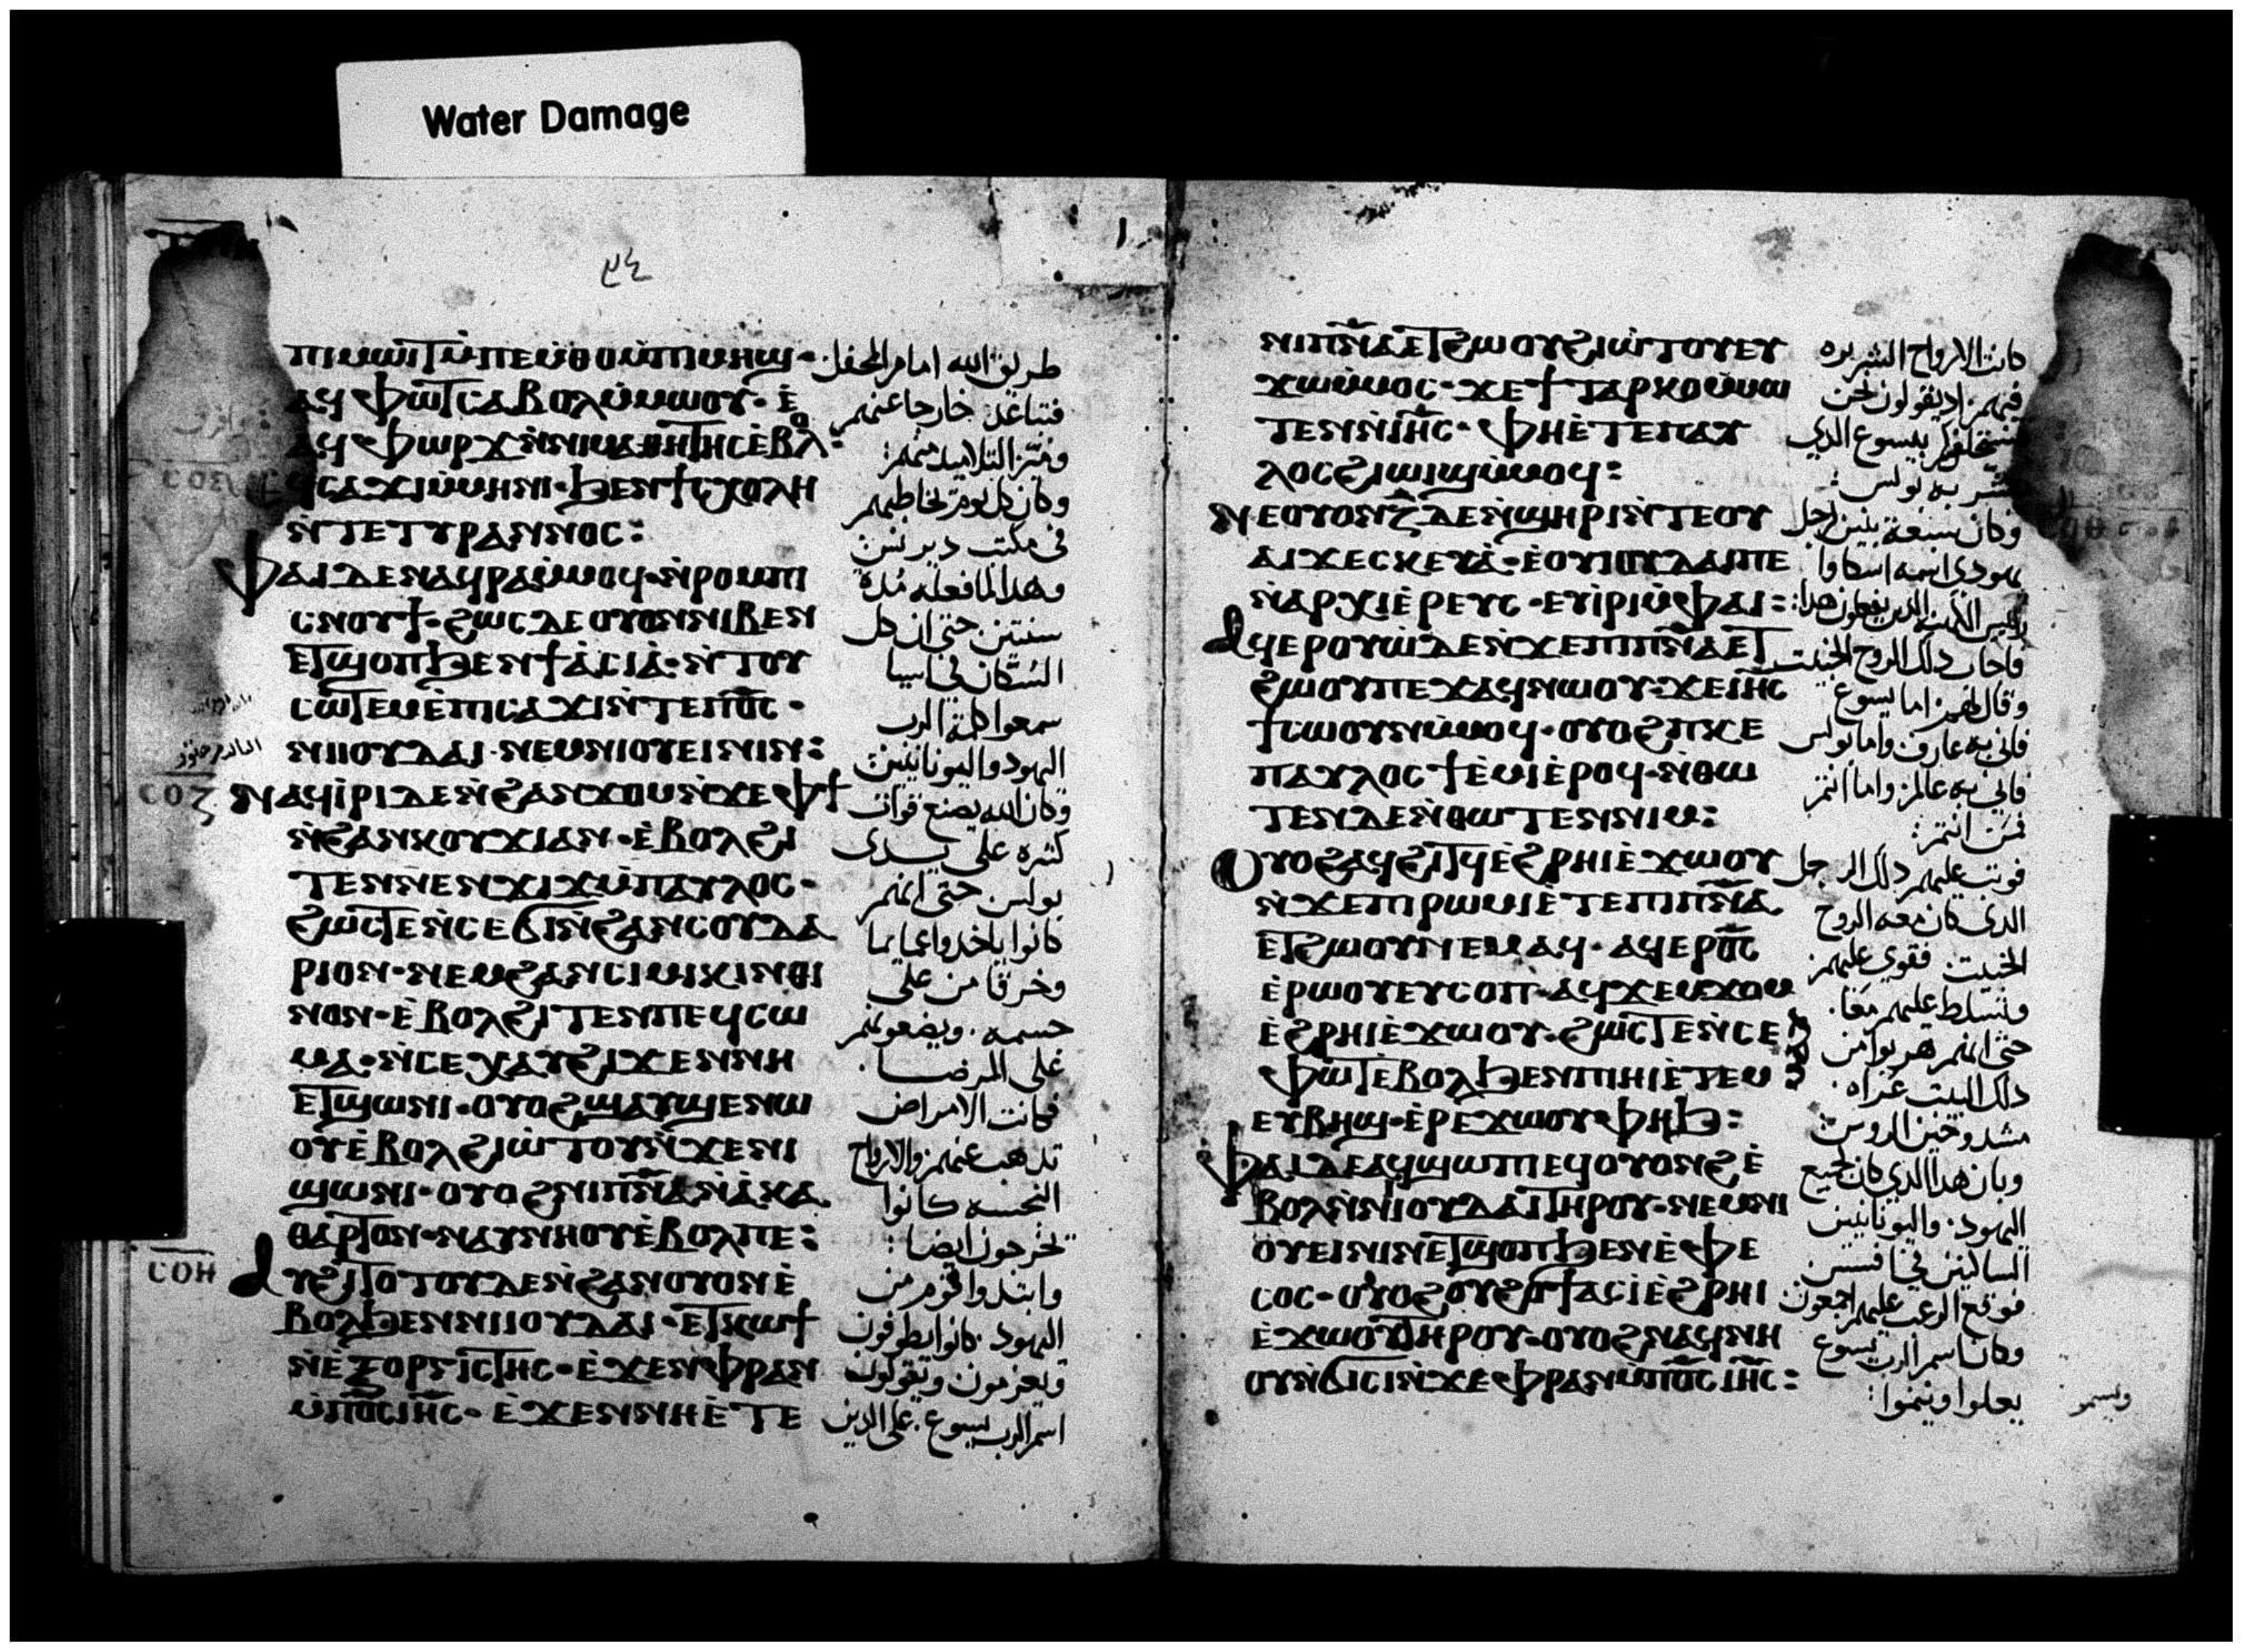 Water Damage
ⲡⲓⲙⲱⲓⲧ ⲙ̀ⲡⲉⲙ̀ⲑⲟ ⲙ̀ⲡⲓⲙⲏϣ·
ⲁϥⲫⲱⲧ ⲥⲁⲃⲟⲗ ⲙ̀ⲙⲱⲟⲩ·
ⲁϥⲫⲱⲣϫ ⲛ̀ⲛⲓⲙⲁⲑⲏⲧⲏⲥ ⲉ̀ⲃⲟⲗ:
ⲥⲁϫⲓ ⲙ̀ⲙⲏⲛⲓ· ϧⲉⲛ ϯⲥⲭⲟⲗⲏ
ⲛ̀ⲧⲉ ⲧⲩⲣⲁⲛⲛⲟⲥ:
ⲫⲁⲓ ⲇⲉ ⲛⲁϥⲣⲁ ⲙ̀ⲙⲟϥ· ⲛ̀ⲣⲟⲙⲡⲓ
ⲥⲛⲟⲩϯ· ϩⲱⲥ ⲇⲉ ⲟⲩⲟⲛ ⲛⲓⲃⲉⲛ
ⲉⲧϣⲟⲡ ϧⲉⲛ ϯⲁ̀ⲥⲓⲁ̀· ⲛ̀ⲧⲟⲩ
ⲥⲱⲧⲉⲙ ⲉ̀ⲡⲓⲥⲁϫⲓ ⲛ̀ⲧⲉ ⲡⲟ̅ⲥ̅·
ⲛⲓⲓⲟⲩⲇⲁⲓ· ⲛⲉⲙ ⲛⲓⲟⲩⲉⲓⲛⲓⲛ:
ⲥⲟⲍ
ⲛⲁϥⲓ̀ⲣⲓ ⲇⲉ ⲛ̀ϩⲁⲛϫⲟⲙ ⲛ̀ϫⲉ ⲫϯ
ⲛ̀ϩⲁⲛⲕⲟⲩϫⲓ ⲁⲛ· ⲉ̀ⲃⲟⲗϩⲓ
ⲧⲉⲛ ⲛⲉⲛϫⲓϫ ⲙ̀ⲡⲁⲩⲗⲟⲥ·
ϩⲱⲥⲧⲉ ⲛ̀ⲥⲉϭⲓ ⲛ̀ϩⲁⲛⲥⲟⲩⲇⲁ
ⲣⲓⲟⲛ· ⲛⲉⲙ ϩⲁⲛⲥⲓⲙⲓⲕⲓⲛⲑⲓ
ⲛⲟⲛ· ⲉ̀ⲃⲟⲗϩⲓⲧⲉⲛ ⲡⲉϥⲥⲱ
ⲙⲁ· ⲛ̀ⲥⲉⲭⲁⲩ ϩⲓϫⲉⲛ ⲛⲏ
ⲉⲧϣⲱⲛⲓ· ⲟⲩⲟϩ ϣⲁⲩϣⲉⲛⲱ
ⲟⲩ ⲉ̀ⲃⲟⲗϩⲓⲱ̀ⲧⲟⲩ ⲛ̀ϫⲉ ⲛⲓ
ϣⲱⲛⲓ· ⲟⲩⲟϩ ⲛⲓⲡⲛ̅ⲁ̅ ⲛ̀ⲁ̀ⲕⲁ
ⲑⲁⲣⲧⲟⲛ· ⲛⲁⲩⲛⲏⲟⲩ ⲉ̀ⲃⲟⲗ ⲡⲉ:
ⲥⲟⲏ
ⲁⲩϩⲓⲧⲟⲧⲟⲩ ⲇⲉ ⲛ̀ϩⲁⲛⲟⲩⲟⲛ ⲉ̀
ⲃⲟⲗϧⲉⲛ ⲛⲓⲓⲟⲩⲇⲁⲓ· ⲉⲧⲕⲱϯ
ⲛ̀ⲉⲝⲟⲣⲅⲓⲥⲧⲏⲥ· ⲉ̀ϫⲉⲛ ⲫⲣⲁⲛ
ⲙ̀ⲡⲟ̅ⲥ̅ ⲓⲏ̅ⲥ̅· ⲉ̀ϫⲉⲛ ⲛⲏ ⲉ̀ⲧⲉ
طريق الله امام المحفل
فتباعد خارجا عنهم
وفرز التلاميذ منهم:
وكان كل يوم يخاطبهم
في مكتب
وهذا لما فعله مدة
سنتين حتى ان كل
السكان في اسيا
سمعوا كلمة الرب
اليهود واليونانيين
وكان الله يصنع قوات
كثيره على يدى
بولس حتى انهم
كانوا ياخذوا عمايما
وخرقا من على
جسمه· ويضعونهم
على المرضا·
فكانت الامراض
تذهب عنهم والارواح
النجسه كانوا
تخرجون ايضا:
وابتدوا قوم من
اليهود· كانوا يطوفون
ويعزمون ويقولون
اسم الرب يسوع· على الذين
ⲛⲓⲡⲛ̅ⲁ̅ ⲉⲧϩⲱⲟⲩ ϩⲓⲱ̀ⲧⲟⲩ ⲉⲩ
ϫⲱⲙ̀ⲙⲟⲥ· ϫⲉ ϯⲧⲁⲣⲕⲟ ⲙ̀ⲙⲱ
ⲧⲉⲛ ⲛ̀ⲓⲏ̅ⲥ̅· ⲫⲏ ⲉ̀ⲧⲉ ⲡⲁⲩ
ⲗⲟⲥ ϩⲓⲱⲓϣ ⲙ̀ⲙⲟϥ:
ⲛⲉ ⲟⲩⲟⲛ ⲍ̅ ⲇⲉ ⲛ̀ϣⲏⲣⲓ ⲛ̀ⲧⲉ ⲟⲩ
ⲁⲓ ϫⲉ ⲥⲕⲉⲩⲁ̀· ⲉ̀ⲟⲩⲓⲟⲩⲇⲁⲓ ⲡⲉ
ⲛ̀ⲁⲣⲭⲓⲉ̀ⲣⲉⲩⲥ· ⲉⲩⲓ̀ⲣⲓ ⲙ̀ⲫⲁⲓ:
ⲁϥⲉⲣⲟⲩⲱ̀ ⲇⲉ ⲛ̀ϫⲉ ⲡⲓⲡⲛ̅ⲁ̅ ⲉⲧ
ϩⲱⲟⲩ ⲡⲉϫⲁϥ ⲛⲱⲟⲩ· ϫⲉ ⲓⲏ̅ⲥ̅
ϯⲥⲱⲟⲩⲛ ⲙ̀ⲙⲟϥ· ⲟⲩⲟϩ ⲡⲕⲉ
ⲡⲁⲩⲗⲟⲥ ϯⲉ̀ⲙⲓ ⲉ̀ⲣⲟϥ· ⲛ̀ⲑⲱ
ⲧⲉⲛ ⲇⲉ ⲛ̀ⲑⲱⲧⲉⲛ ⲛⲓⲙ:
ⲟⲩⲟϩ ⲁϥϩⲓⲧϥ ⲉ̀ϩⲣⲏⲓ ⲉ̀ϫⲱⲟⲩ
ⲛ̀ϫⲉ ⲡⲓⲣⲱⲙⲓ ⲉ̀ⲧⲉ ⲡⲓⲡⲛ̅ⲁ̅
ⲉⲧϩⲱⲟⲩ ⲛⲉⲙⲁϥ· ⲁϥⲉⲣⲟ̅ⲥ̅
ⲉ̀ⲣⲱⲟⲩ ⲉⲩⲥⲟⲡ· ⲁϥϫⲉⲙϫⲟⲙ
ⲉ̀ϩⲣⲏⲓ ⲉ̀ϫⲱⲟⲩ· ϩⲱⲥⲧⲉ ⲛ̀ⲥⲉ
ⲫⲱⲧ ⲉ̀ⲃⲟⲗϧⲉⲛ ⲡⲓⲏⲓ ⲉ̀ⲧⲉⲙ
ⲉⲩⲃⲏϣ· ⲉ̀ⲣⲉ ϫⲱⲟⲩ ⲫⲏϧ:
ⲫⲁⲓ ⲇⲉ ⲁϥϣⲱⲡⲓ ⲉϥⲟⲩⲟⲛϩ ⲉ̀
ⲃⲟⲗ ⲛ̀ⲛⲓⲓⲟⲩⲇⲁⲓ ⲧⲏⲣⲟⲩ· ⲛⲉⲙ ⲛⲓ
ⲟⲩⲉⲓⲛⲓⲛ ⲉⲧϣⲟⲡ ϧⲉⲛ ⲉ̀ⲫⲉ
ⲥⲟⲥ· ⲟⲩⲟϩ ⲟⲩϩⲟϯ ⲁⲥⲓ̀ ⲉ̀ϩⲣⲏⲓ
ⲉ̀ϫⲱⲟⲩ ⲧⲏⲣⲟⲩ· ⲟⲩⲟϩ ⲛⲁϥⲛⲏ
ⲟⲩ ⲛ̀ϭⲓⲥⲓ ⲛ̀ϫⲉ ⲫⲣⲁⲛ ⲙ̀ⲡⲟ̅ⲥ̅ ⲓⲏ̅ⲥ̅:
كانت الارواح الشريره
فيهم· اذ يقولون نحن
نستحلفكم بيسوع الذي
بشر به بولس:
وكان سبعة بنين لرجل
يهودى اسمه اسكاوا
فاجاب ذلك الروح الخبيث
وقال لهم· اما يسوع
فاني به عارف واما بولس
فاني به عالم· واما انتم
فمن انتم:
فوثب عليهم ذلك الرجل
الذى كان معه الروح
الخبيث· فقوي عليهم
وتسلط عليهم معًا·
حتى انهم هربوا من
ذلك البيت عراه·
وبان هذا الذي كان لجميع
اليهود· واليونانيين
الساكنين في افسس
فوقع الرعب عليهم اجمعون
وكان اسم الرب يسوع
يعلوا وينموا: